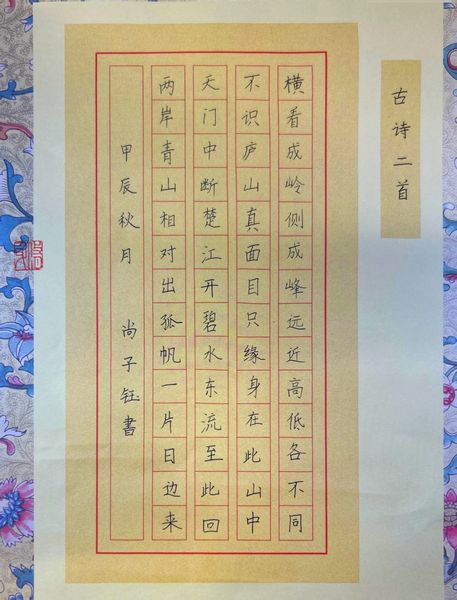 古诗二首
横看成岭侧成峰远近高低各不同
不识庐山真面目只缘身在此山中
天门中断楚江开碧水东流至此回
两岸青山相对出孤帆一片日边来
甲辰秋月 尚子钰書